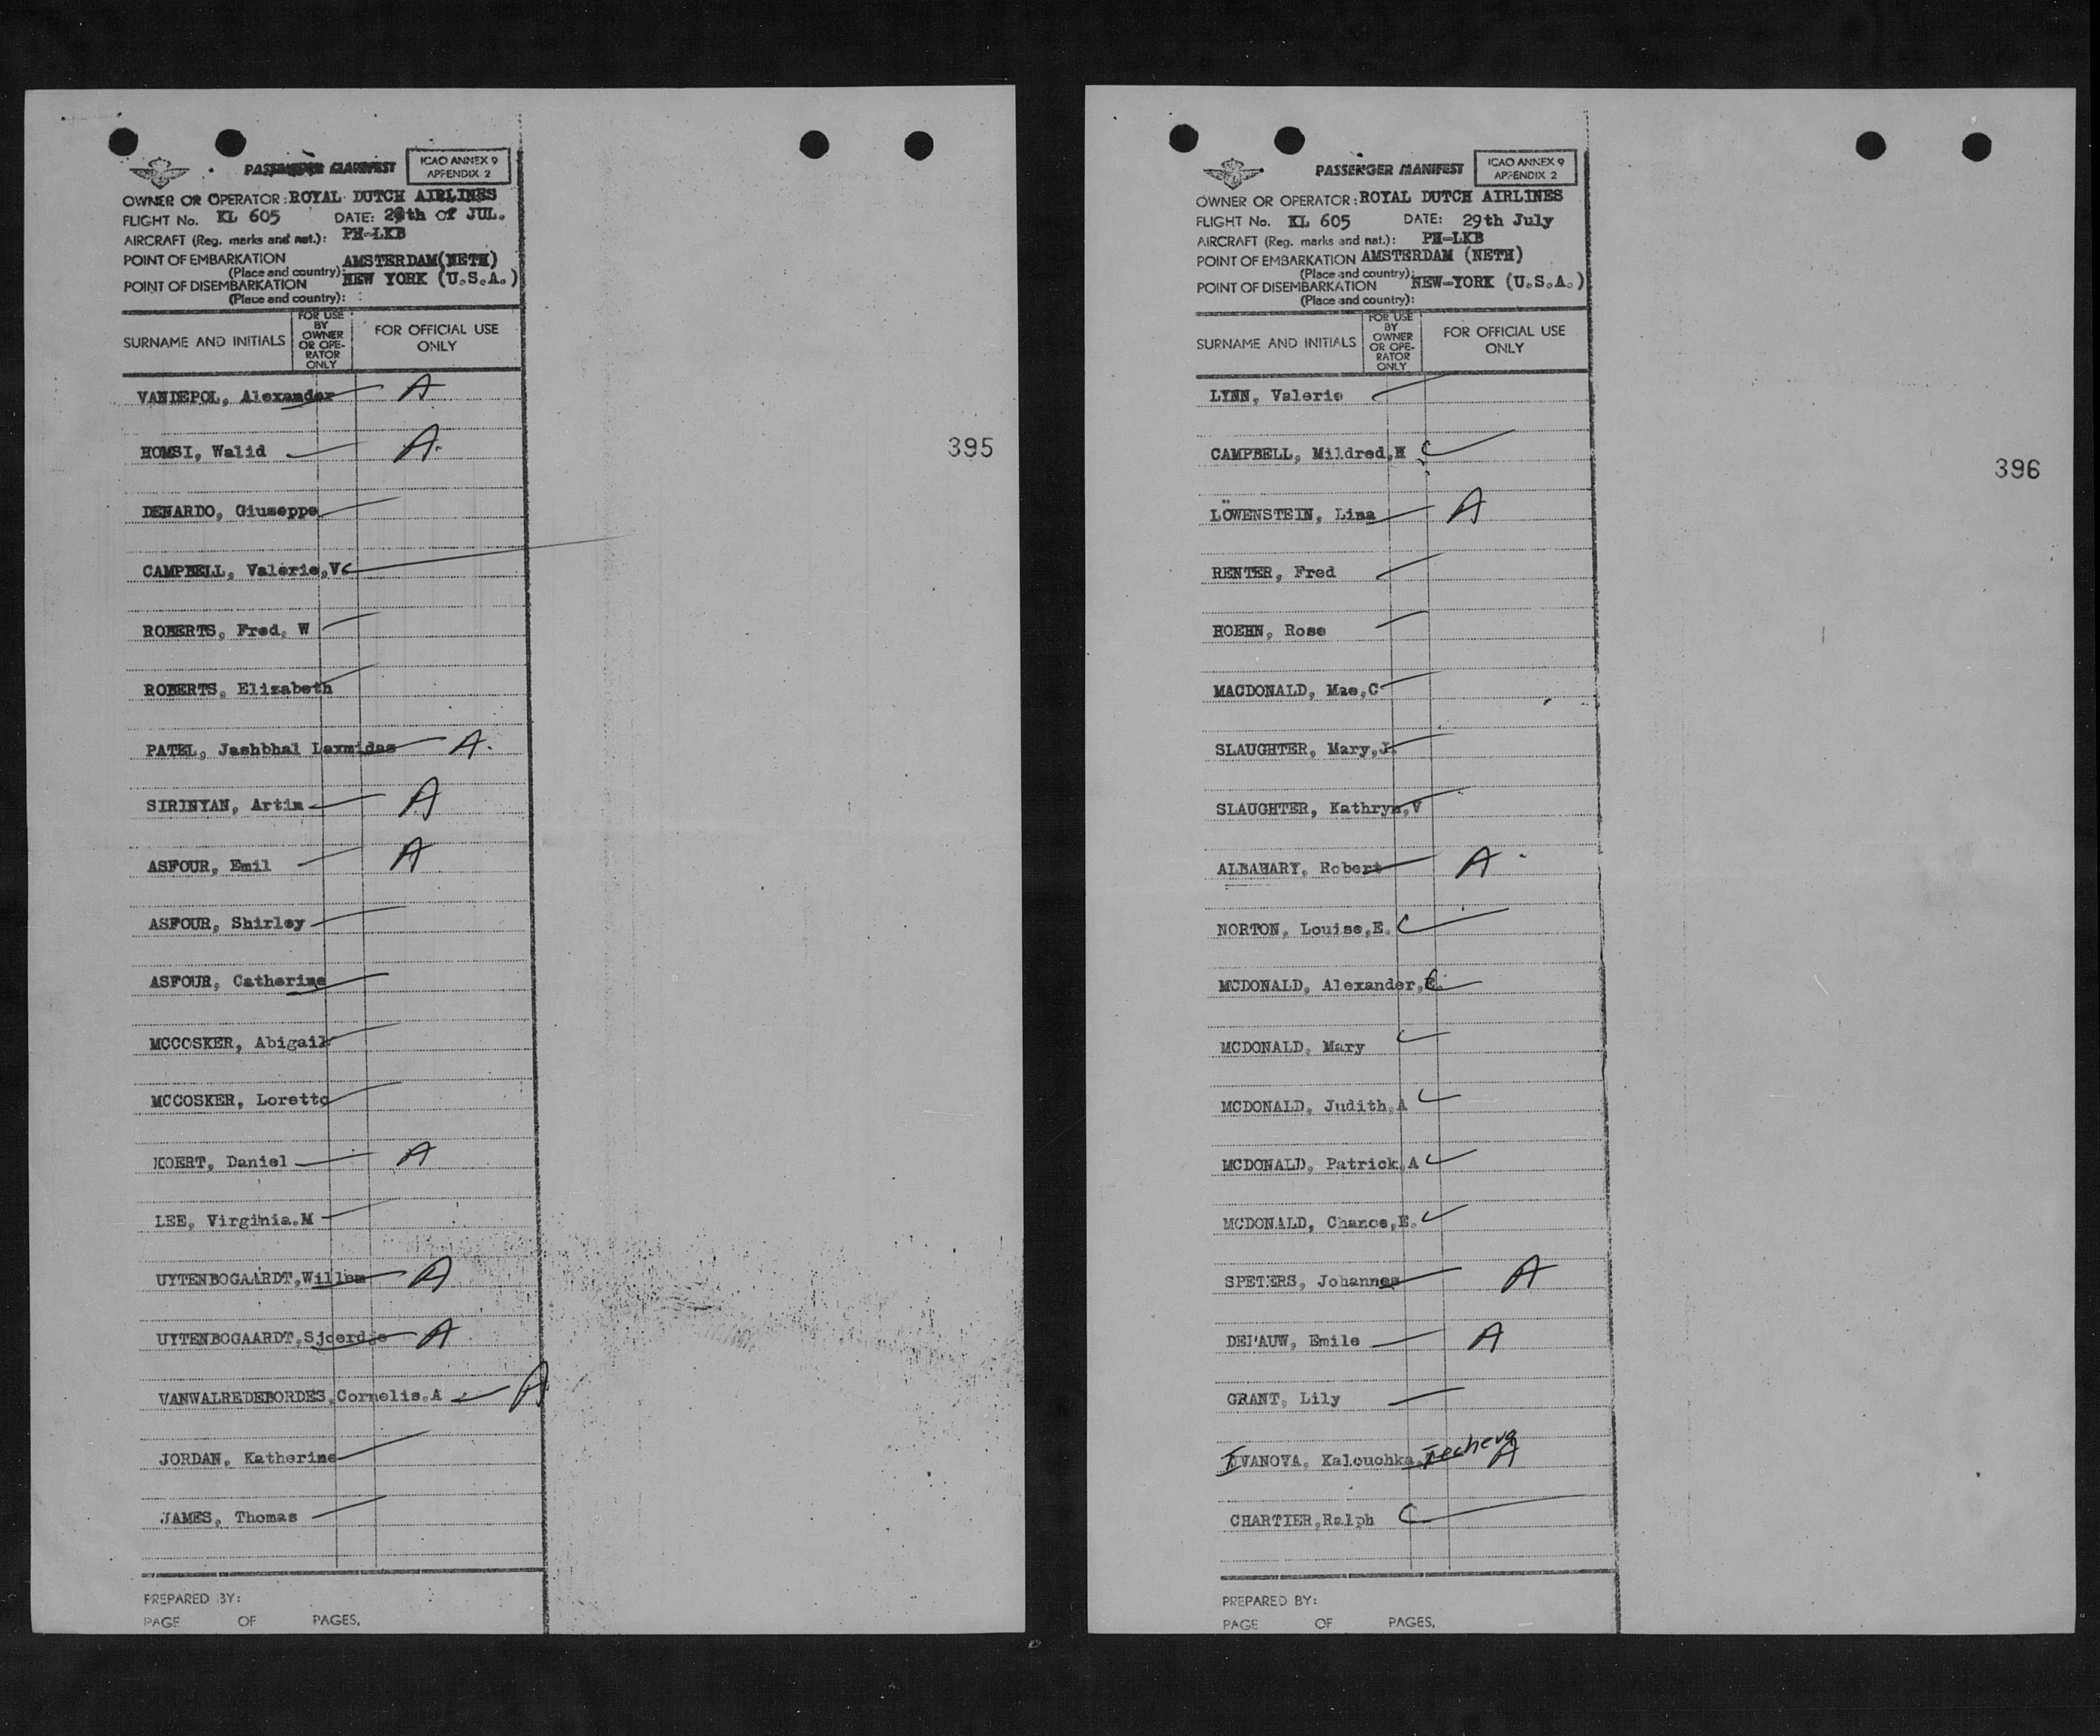 PASSENGER MANIFEST
ICAO ANNEX 9
APPENDIX 2
OWNER OR OPERATOR: ROYAL DUTCH AIRLINES
FLIGHT No. KL 605 DATE: 29th of JUL.
AIRCRAFT (Reg. marks and nat.): PH-LKB
POINT OF EMBARKATION AMSTERDAM(NETH)
(Place and country):
POINT OF DISEMBARKATION NEW YORK (U.S.A.)
(Place and country):
SURNAME AND INITIALS
FOR USE
BY
OWNER
OR OPE-
RATOR
ONLY
FOR OFFICIAL USE
ONLY
VANDEPOL, Alexander A
HOMSI, Walid A.
395
DENARDO, Giuseppe
CAMPBELL, Valerie,V C
ROBERTS, Fred, W
ROBERTS, Elizabeth
PATEL, Jashbhal Laxmidas A.
SIRINYAN, Artin A
ASFOUR, Emil A
ASFOUR, Shirley
ASFOUR, Catherine
MCCOSKER, Abigail
MCCOSKER, Loretto
KOERT, Daniel A
LEE, Virginia.M
UYTENBOGAARDT,Willem A
UYTENBOGAARDT,Sjoerdje A
VANWALREDEBORDES,Cornelis.A A
JORDAN, Katherine
JAMES, Thomas
PREPARED BY:
PAGE OF PAGES.
PASSENGER MANIFEST
ICAO ANNEX 9
APPENDIX 2
OWNER OR OPERATOR: ROYAL DUTCH AIRLINES
FLIGHT No. KL 605 DATE: 29th July
AIRCRAFT (Reg. marks and nat.): PH-LKB
POINT OF EMBARKATION AMSTERDAM (NETH)
(Place and country):
POINT OF DISEMBARKATION NEW-YORK (U.S.A.)
(Place and country):
SURNAME AND INITIALS
FOR USE
BY
OWNER
OR OPE-
RATOR
ONLY
FOR OFFICIAL USE
ONLY
LYNN, Valerie
CAMPBELL, Mildred,H C
396
LÖWENSTEIN, Lina A
RENTER, Fred
HOEHN, Rose
MACDONALD, Mae,C
SLAUGHTER, Mary,J.
SLAUGHTER, Kathryn,V
ALBAHARY, Robert A
NORTON, Louise,E. C
MCDONALD, Alexander, C
MCDONALD, Mary C
MCDONALD, Judith,A C
MCDONALD, Patrick,A C
MCDONALD, Chance,E. C
SPETERS, Johannes A
DEPAUW, Emile A
GRANT, Lily
IVANOVA, Kalouchka, Techeva A
CHARTIER,Ralph C
PREPARED BY:
PAGE OF PAGES.